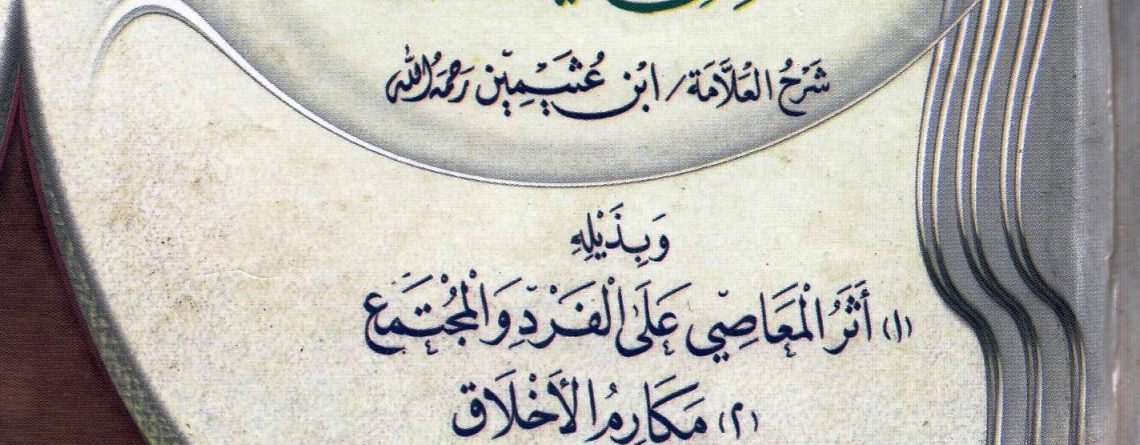 شَرْحُ الْعَلَّامَة / ابْن عُثَيْمِين رَحِمَهُ اللَّه
وَبِذَيْلِهِ
(١) أَثَرُ الْمَعَاصِي عَلَى الْفَرْدِ وَالْمُجْتَمَع
(٢) مَكَارِمُ الأَخْلَاق